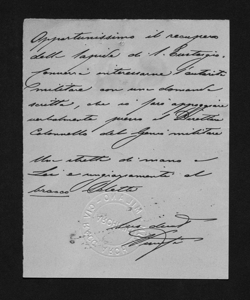 Opportunissimo il recupero
delle lapide di S. Eustorgio.
interessarne l'autorità
militare con una domanda
scritta, che io poi appoggierei
verbalmente presso il Direttore
Colonnello del Genio militare
Una stretta di mano a
Lei e ringraziamenti al
bravo
Suo